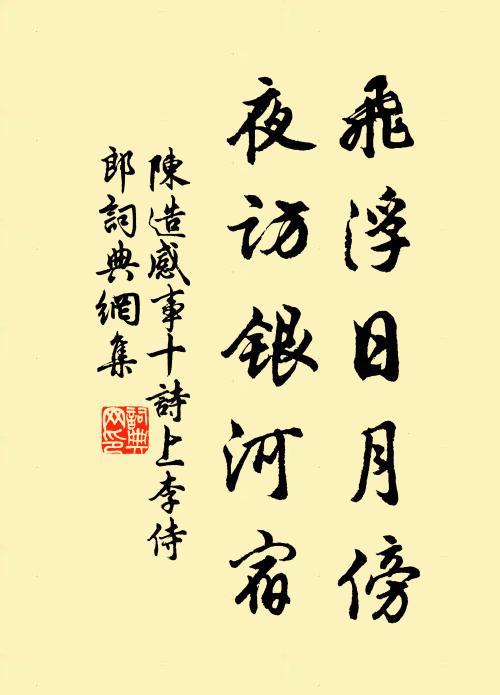 飛浮日月傍
夜訪銀河宿
陳造感事十詩上李侍
郎詞典網集
詞典
网印